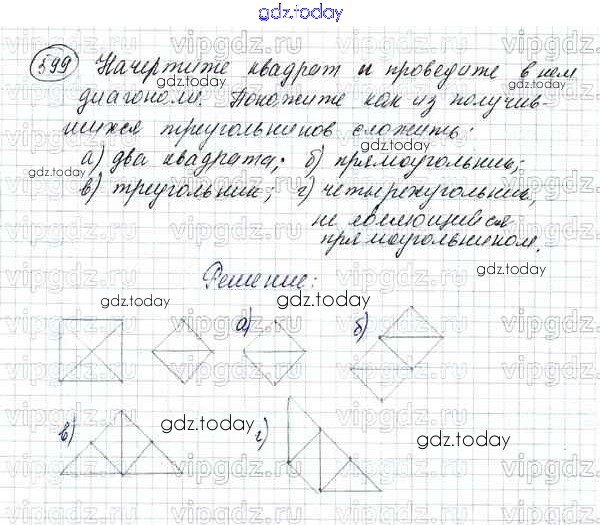 gdz.today
599 Начертите квадрат и проведите в нем
диагонали. Покажите как из получив-
шихся треугольников сложить:
а) два квадрата; б) прямоугольник;
в) треугольник; г) четырехугольник,
не являющийся
прямоугольником.
Решение:
а) б)
в) г)